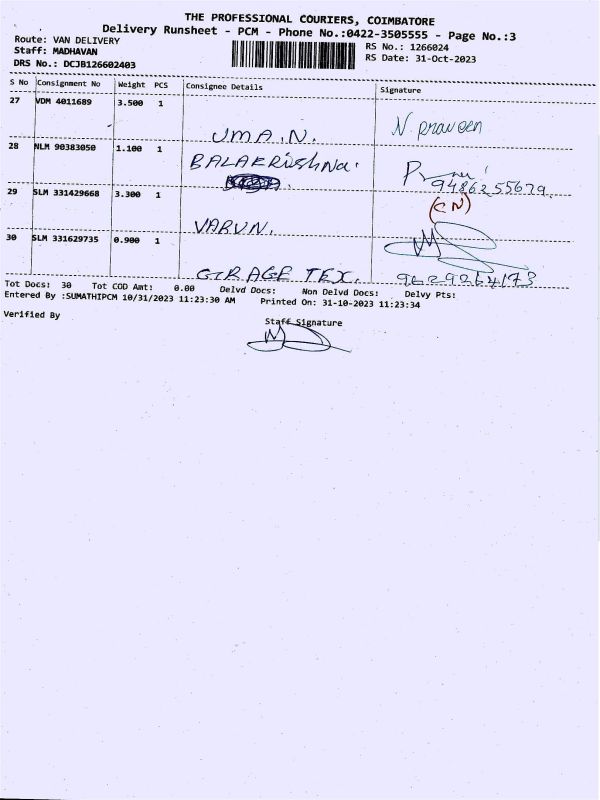 THE PROFESSIONAL COURIERS, COIMBATORE
Delivery Runsheet - PCM - Phone No.:0422-3505555 - Page No.:3
Route: VAN DELIVERY
RS No.: 1266024
Staff: MADHAVAN
RS Date: 31-Oct-2023
DRS No.: DCJB126602403
S No Consignment No Weight PCS Consignee Details Signature
27 VDM 4011689 3.500 1
UMA.N. N praveen
28 NLM 90383050 1.100 1
BALAKRishNa.
9486255679
29 SLM 331429668 3.300 1
(CN)
VARUN.
30 SLM 331629735 0.900 1
GIRAGE TEX. 9629264173
Tot Docs: 30 Tot COD Amt: 0.00 Delvd Docs: Non Delvd Docs: Delvy Pts:
Entered By :SUMATHIPCM 10/31/2023 11:23:30 AM Printed On: 31-10-2023 11:23:34
Verified By
Staff Signature